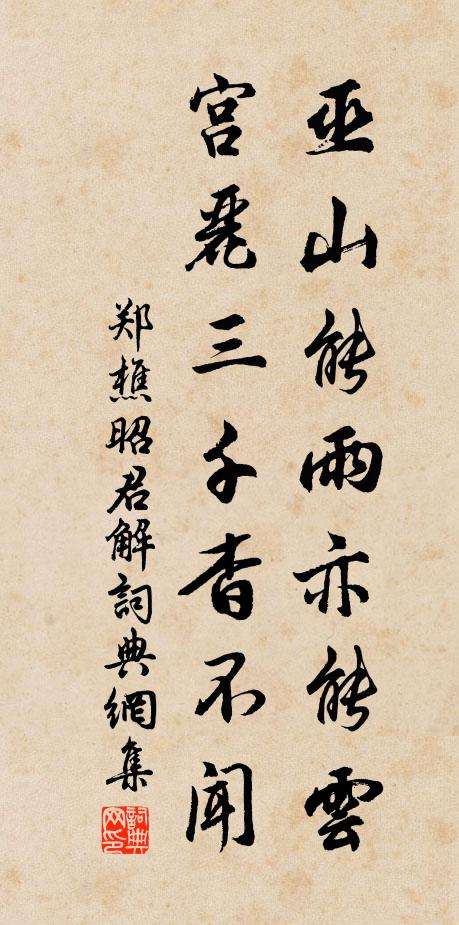 巫山能雨亦能雲
宫麗三千杳不闻
郑樵昭君解詞典網集
詞典网印